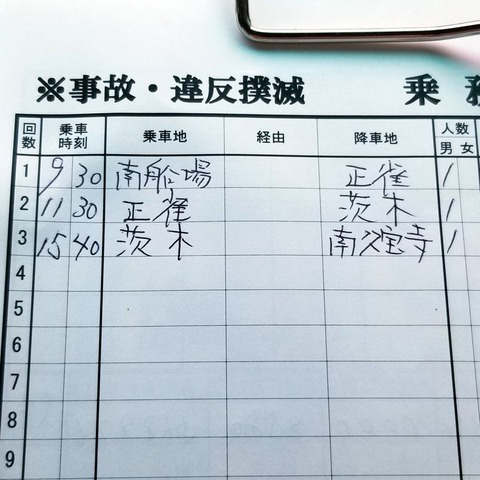 ※事故・違反撲滅 乗務
回数 乗車時刻 乗車地 経由 降車地 人数 男 女
1 9 30 南船場 正雀 1
2 11 30 正雀 茨木 1
3 15 40 茨木 南久宝寺 1
4
5
6
7
8
9